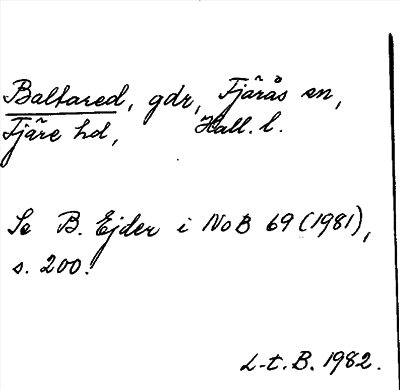 Baltared, gdr, Fjärås sn,
Fjäre hd, Hall. l.
Se B. Ejder i NoB 69 (1981),
s. 200.
L-t. B. 1982.